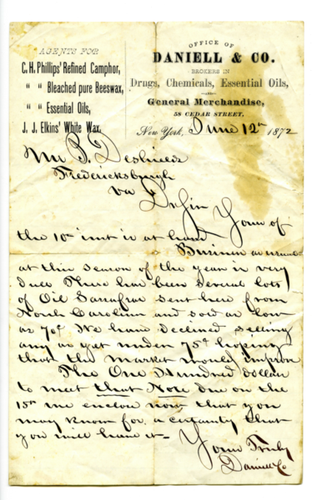 OFFICE OF
DANIELL & CO.
BROKERS IN
Drugs, Chemicals, Essential Oils,
AND
General Merchandise,
58 CEDAR STREET,
AGENTS FOR
C. H. Phillips' Refined Camphor,
" " Bleached pure Beeswax,
" " Essential Oils,
J. J. Elkins' White Wax.
New York, June 12th 1872
Mr P.
Fredericksburgh
Va
Dr Sir Your of
the 10th inst is at hand
Business as usual
at this season of the year is very
dull There has been several lots
of Oil Sassafras sent here from
North Carolina and sold as low
as 70¢ We have declined selling
any as yet under 75¢ hoping
that the market would improve
The One Hundred Dollar
to meet that Note due on the
15th we enclose now that you
may know for a certainty that
you will have it
Yours Truly
Daniell & Co